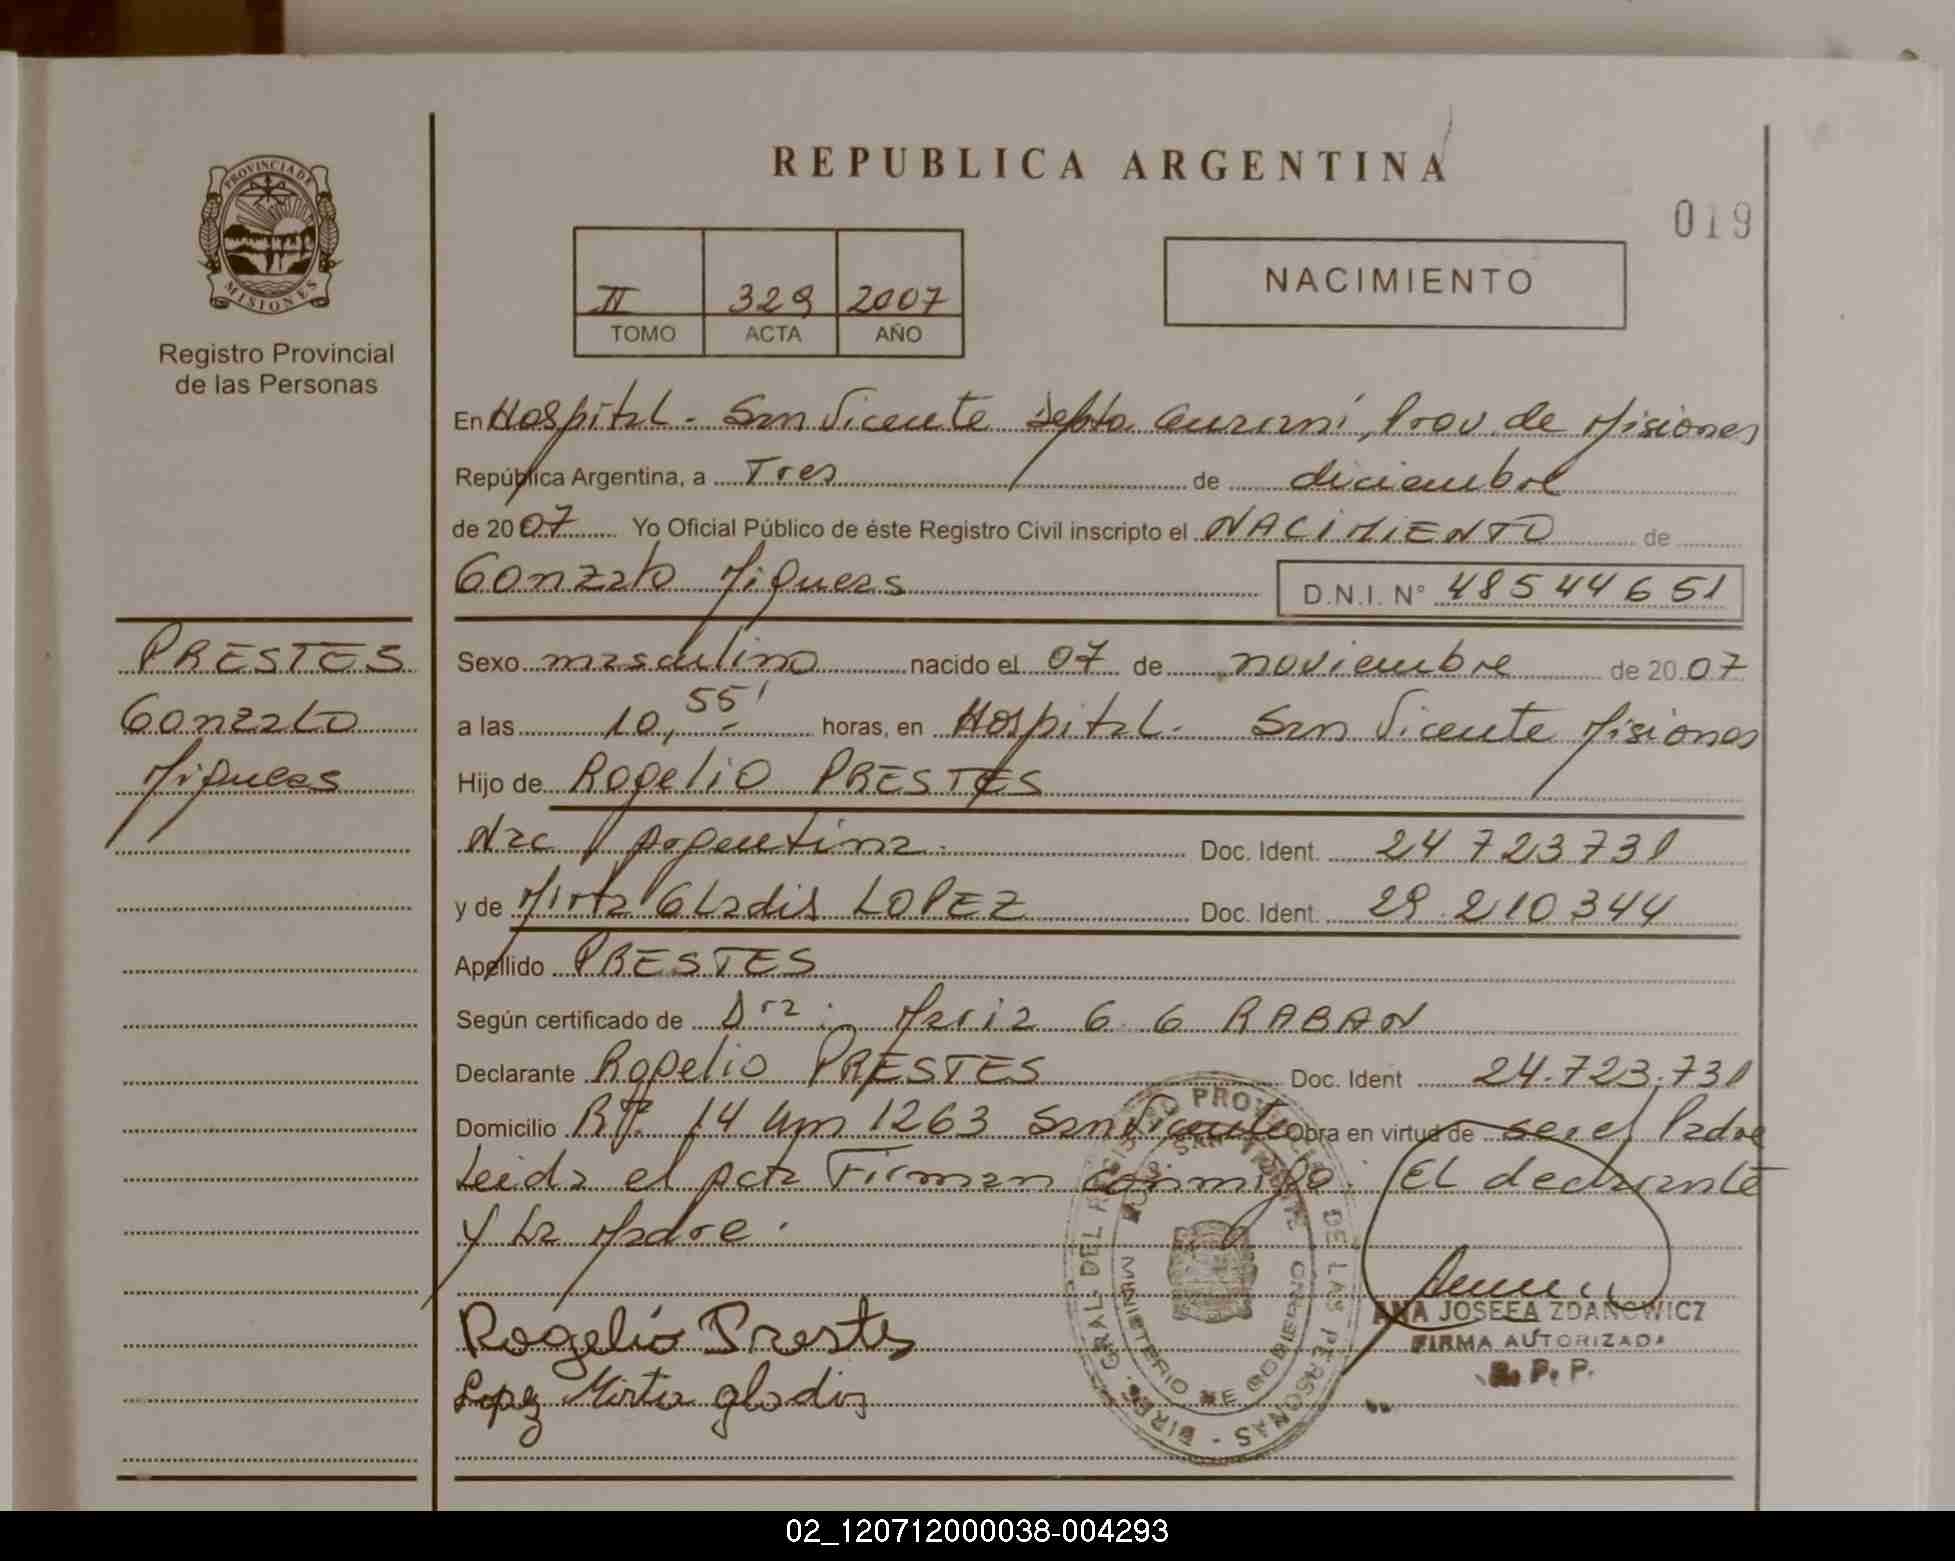 PROVINCIA DE
MISIONES
Registro Provincial
de las Personas
REPUBLICA ARGENTINA
019
II 329 2007
TOMO ACTA AÑO
NACIMIENTO
En Hospital - San Vicente Depto Guaraní, Prov. de Misiones
República Argentina, a Tres de diciembre
de 2007 Yo Oficial Público de éste Registro Civil inscripto el NACIMIENTO de
Gonzalo Miqueas D.N.I. N° 48544651
PRESTES
Gonzalo
Miqueas
Sexo masculino nacido el 07 de noviembre de 2007
a las 10,55' horas, en Hospital - San Vicente Misiones
Hijo de Rogelio PRESTES
Nac argentina Doc. Ident. 24 723731
y de Mirta Gladis LOPEZ Doc. Ident. 29 210344
Apellido PRESTES
Según certificado de Dra: Maria G G RABAN
Declarante Rogelio PRESTES Doc. Ident 24.723.731
Domicilio RN. 14 Km 1263 San Vicente Obra en virtud de ser el Padre
Leida el acta Firman conmigo: El declarante
y La Madre.
Rogelio Prestes
Lopez Mirta gladis
ANA JOSEFA ZDANOWICZ
FIRMA AUTORIZADA
R. P. P.
DIREC. GRAL. DEL REGISTRO PROVINCIAL DE LAS PERSONAS -
MINISTERIO DE GOBIERNO
02_120712000038-004293